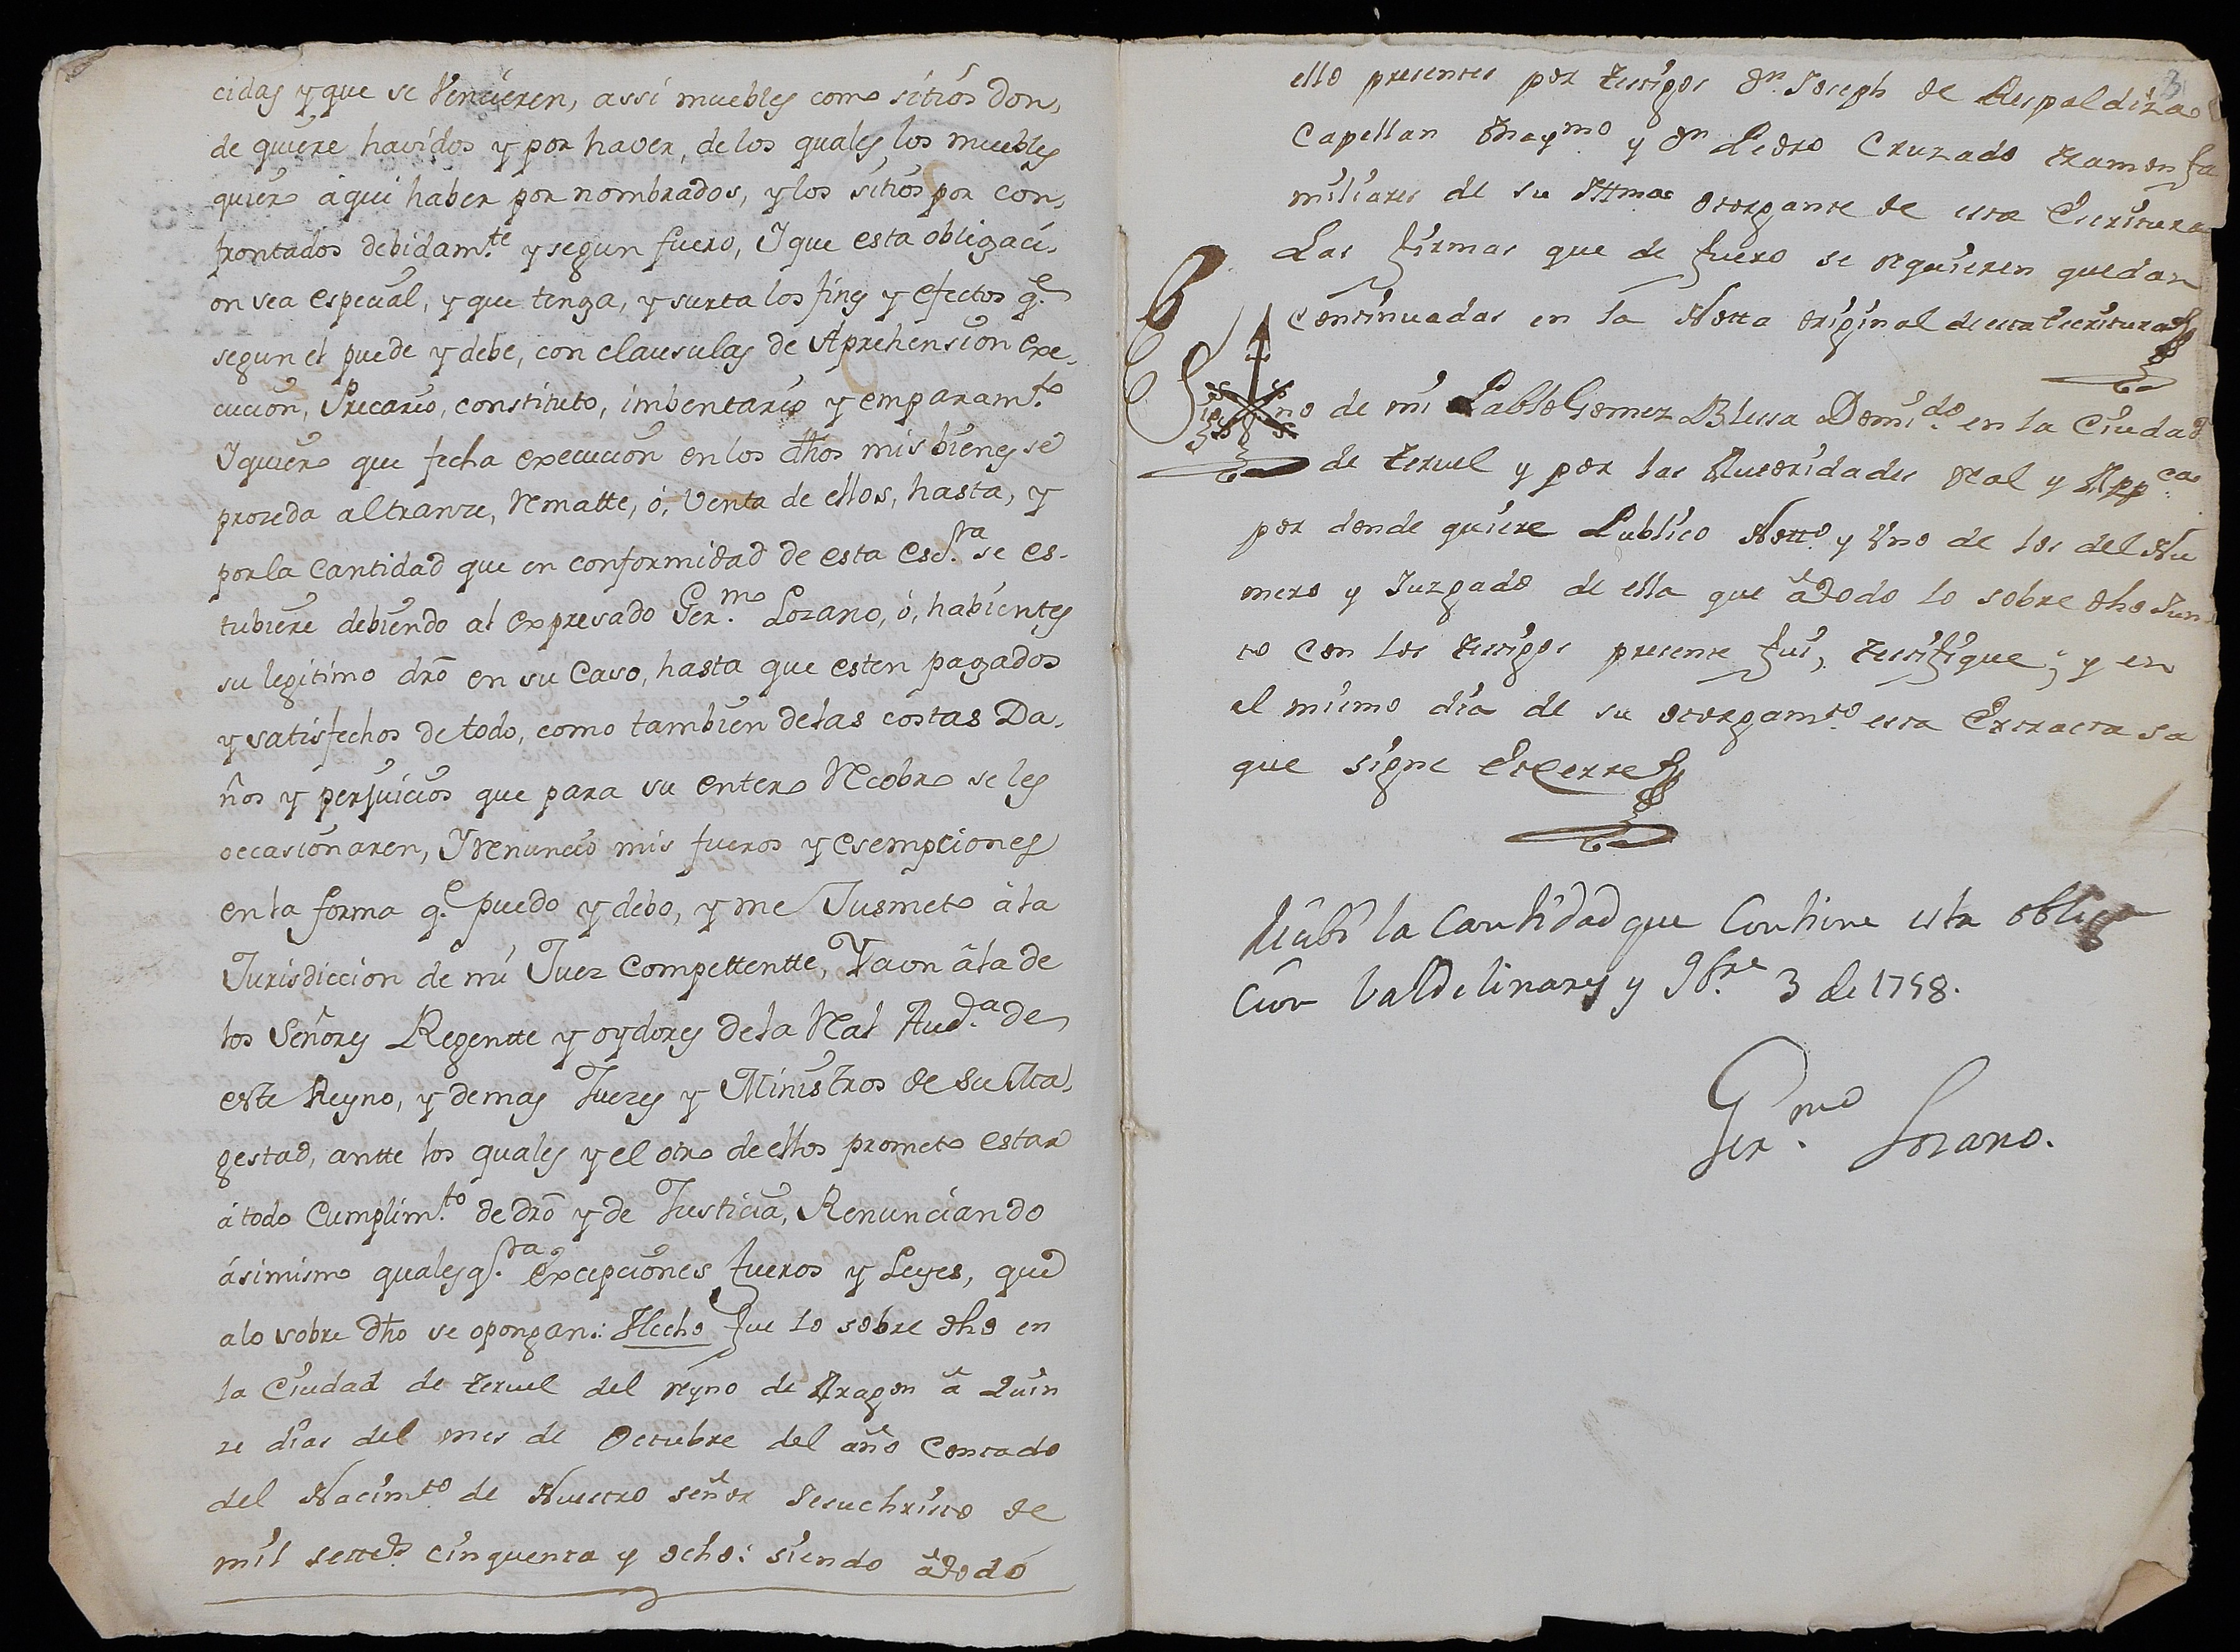 cidas y que se Vencieren, assi muebles como sitios don,
de quiere havidos y por haver, de los quales los muebles
quiero aqui haber por nombrados, y los sitios por con,
frontados debidam.te y segun fuero, Y que esta obligaci,
on sea especial, y que tenga, y surta los fines y efectos q.e
segun el puede y debe, con clausulas de Aprehension exe,
cucion, Precario, constituto, imbentario y emparam.to
Y quiero que fecha execucion en los dhos mis bienes se
prozeda al tranze, Rematte, ó, Venta de ellos, hasta, y
por la Cantidad que en conformidad de esta esc.ra se es-
tubiere debiendo al expresado Ger.mo Lozano, ó, habientes
su legitimo dro en su Caso, hasta que esten pagados
y satisfechos de todo, como tambien de las costas Da,
ños y perjuicios que para su entero Recobro se les
occasionaren, Y Renuncio mis fueros y esempciones
en la forma q.e puedo y debo, y me Jusmeto â la
Jurisdiccion de mi Juez Compettentte, Y aun â la de
los Señores Regentte y oydores de la Real Aud.a de
este Reyno, y demas Juezes y Ministros de Su Ma,
gestad, antte los quales y el otro de ellos prometo estar
á todo Cumplim.to de dro y de Justicia, Renunciando
ásimismo qualesq.ra excepciones fueros y Leyes, que
a lo sobre dho se opongan: Hecho fue lo sobre dho en
la Ciudad de Teruel del reyno de Aragon â Quin
ze dias del mes de Octubre del año Contado
del Nacim.to de Nuestro señor Jesuchristo de
mil settec.s cinquenta y ocho: siendo â todo
ello presentes por testigos d.n Joseph de Respaldiza
Capellan May.mo y d.n Pedro Cruzado Ramon fa
miliares de su Illma otorgante de esta Escritura
Las firmas que de fuero se requieren quedan
continuadas en la Notta original de esta Escritura
Sig no de mi Pablo Gomez Blesa Domi.do en la Ciudad
de Teruel y por las Autoridades Real y App.cas
por donde quiere Publico Nott.o y Uno de los del Nu
mero y Juzgado de ella que â todo lo sobre dho Jun
to con los testigos presente fui, testifique; y en
el mismo dia de su otorgam.to esta Extracta sa
que signe Et Cerre
Recibi la Cantidad que Contiene esta obliga
cion Valdelinares y 9b.re 3 de 1758.
Ger.mo Lozano.